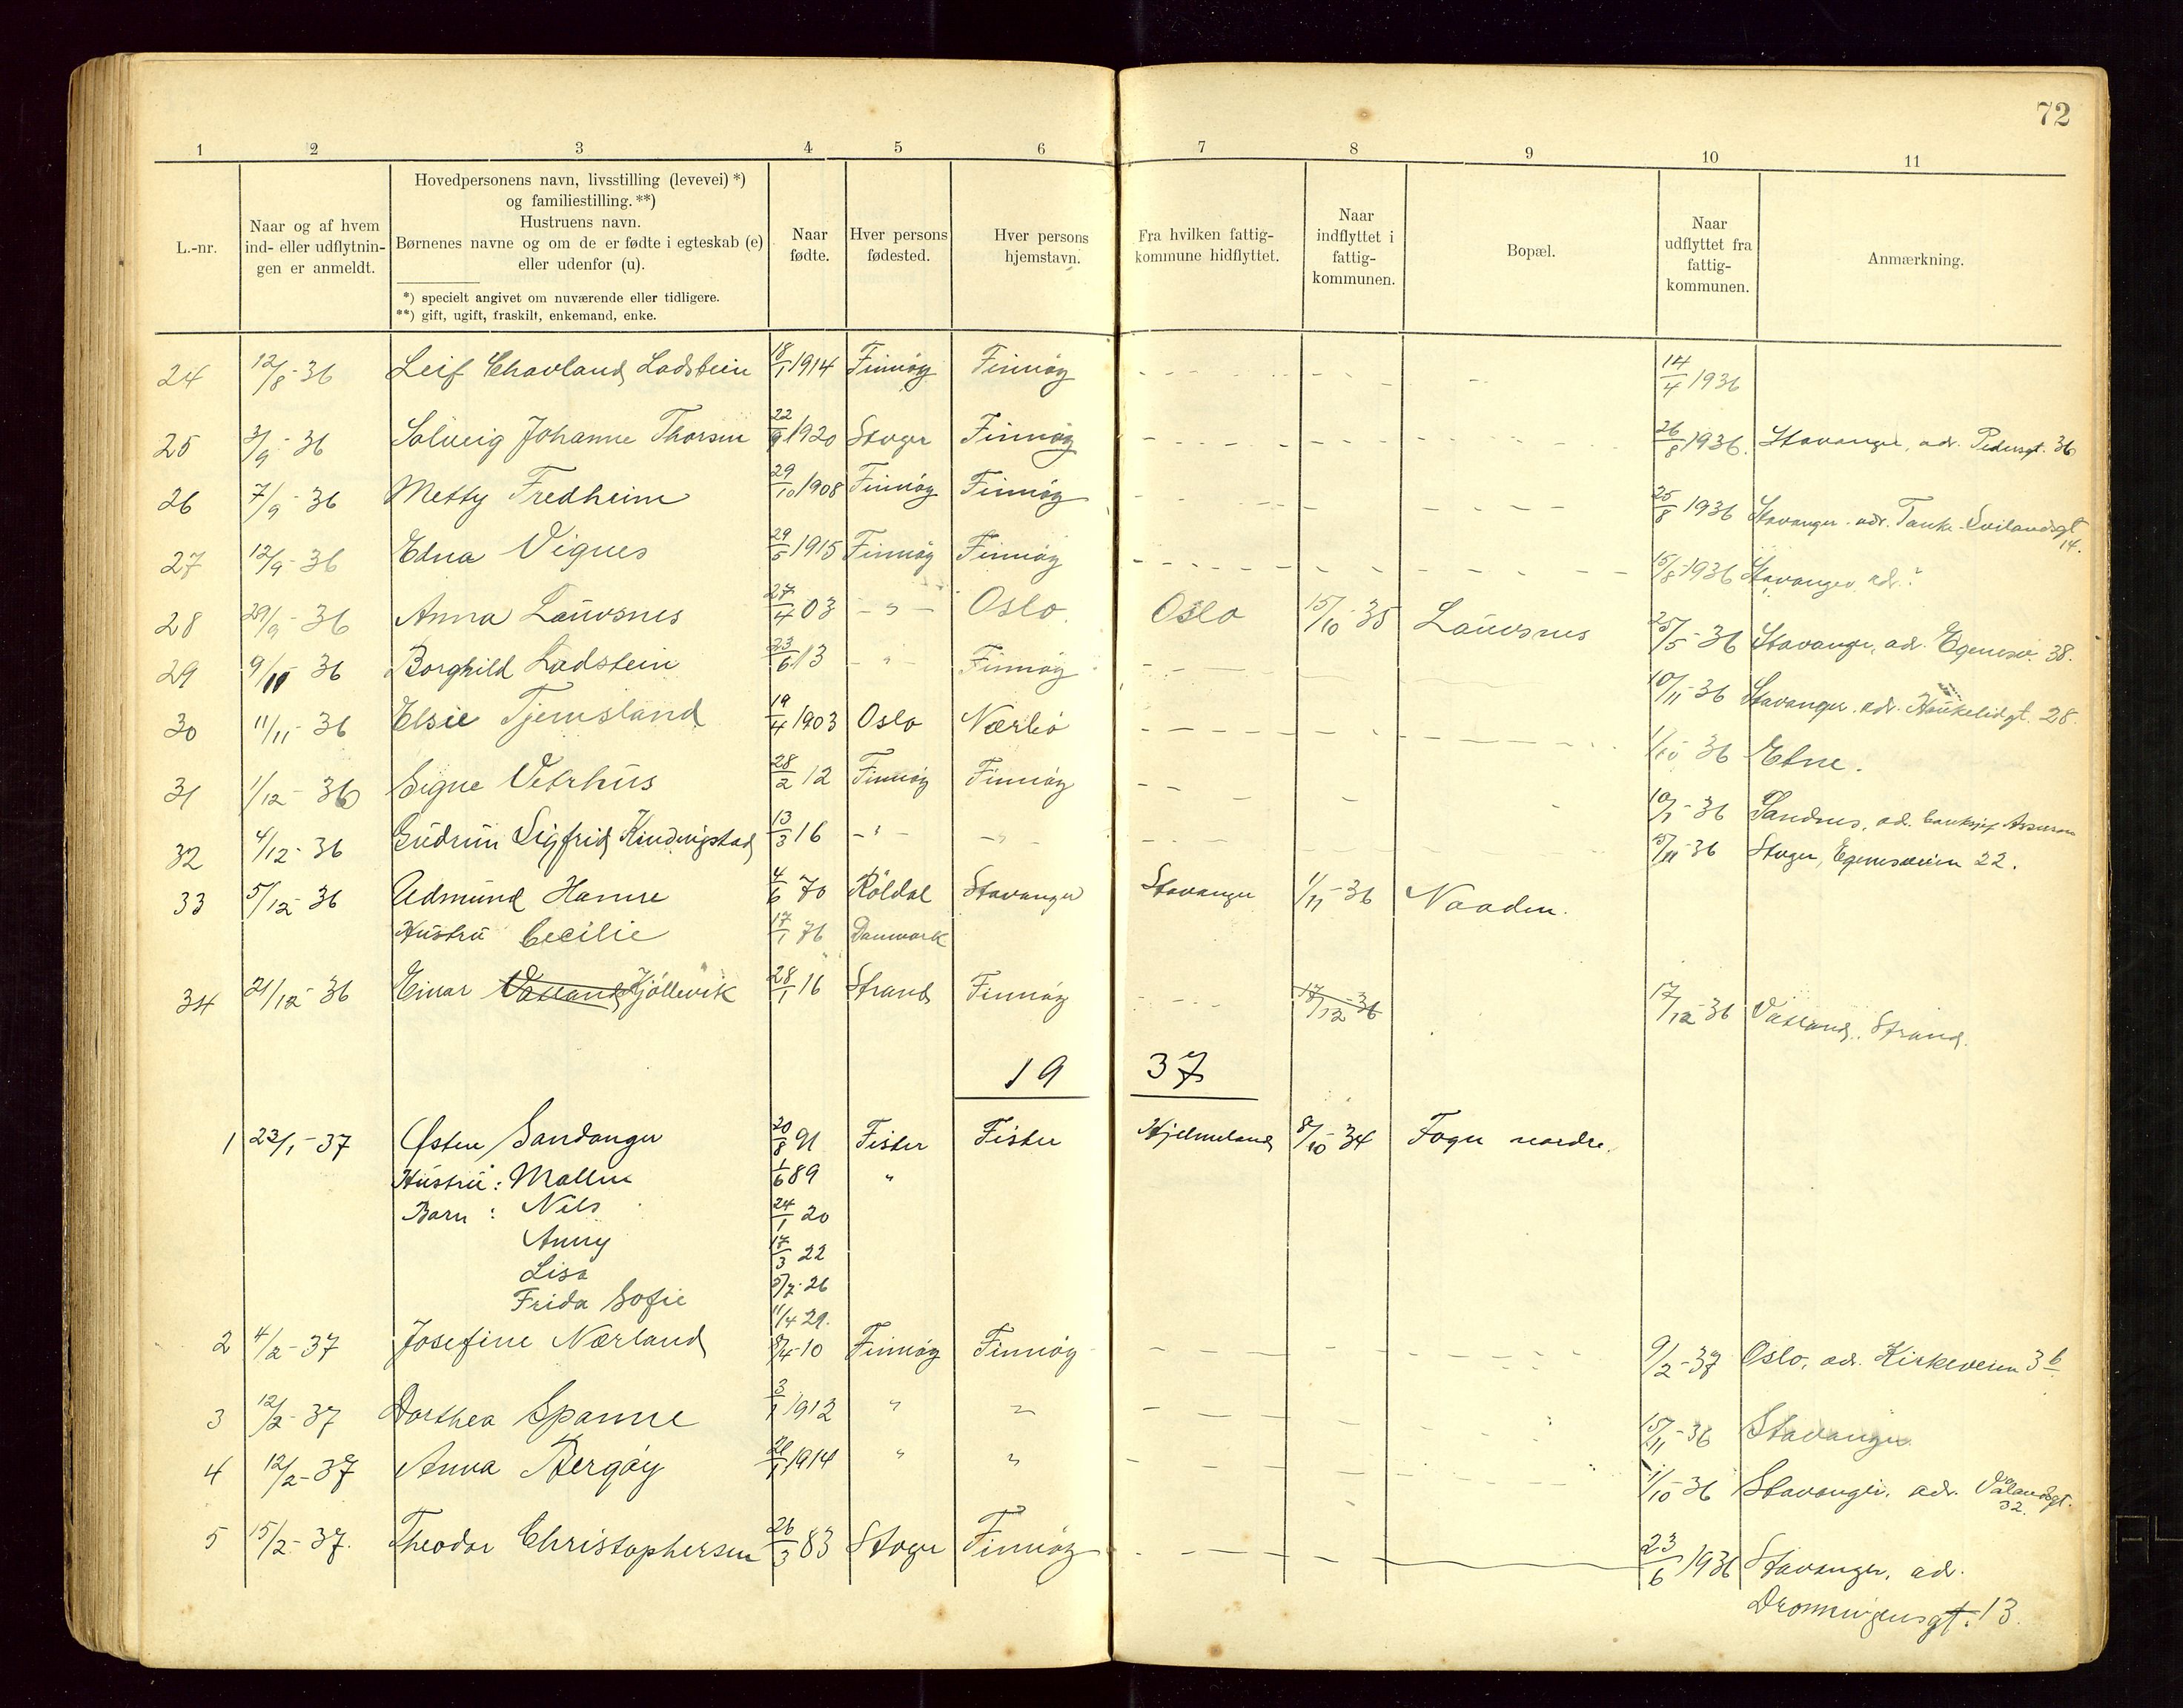 72
1 2 3 4 5 6 7 8 9 10 11
L.-nr.
Naar og af hvem
ind- eller udflytnin-
gen er anmeldt.
Hovedpersonens navn, livsstilling (levevei) *)
og familiestilling. **)
Hustruens navn.
Børnenes navne og om de er fødte i egteskab (e)
eller udenfor (u).
*) specielt angivet om nuværende eller tidligere.
**) gift, ugift, fraskilt, enkemand, enke.
Naar
fødte.
Hver persons
fødested.
Hver persons
hjemstavn.
Fra hvilken fattig-
kommune hidflyttet.
Naar
indflyttet i
fattig-
kommunen.
Bopæl.
Naar
udflyttet fra
fattig-
kommunen.
Anmærkning.
24 12/8-36 Leif Ladstein 18/1 1914 Finnøy Finnøy 14/4 1936
25 3/9-36 Solveig Johanne Thorsen 22/9 1920 Stvgr Finnøy 26/8 1936. Stavanger, adr. Pedersgt. 36
26 7/9-36 Metty Fredheim 29/10 1908 Finnøy Finnøy 25/8 1936 Stavanger. adr. Tanke-Svilandsgt 14.
27 12/9-36 Edna Vignes 29/5 1915 Finnøy Finnøy 15/8-1936 Stavanger, adr. ?
28 29/9-36 Anna Lauvsnes 27/4 03 -"- Oslo. Oslo 15/10-35 Lauvsnes 25/5-36 Stavanger, adr. Egenesv. 38.
29 9/11 36 Borghild Ladstein 23/6 13 -"- Finnøy 10/11-36 Stavanger. adr. Haukelidgt. 28.
30 11/11-36 Elsie Tjemsland 19/4 1903 Oslo Nærbø 1/10-36 Etne.
31 1/12-36 Signe Vetrhus 28/2 12 Finnøy Finnøy 10/7-36 Sandnes, ad. banksjef
32 4/12-36 Gudrun Sigfrid Kindingstad 13/3 16 -"- -"- 15/11-36 Stvgr, Egenesveien 22.
33 5/12-36 Admund Hamre 4/6 70 Røldal Stavanger Stavanger 1/11-36 Naaden.
Hustru Cecilie 17/1 76 Danmark
34 21/12-36 Einar Vatland Kjøllevik 28/1 16 Strand Finnøy 17/12-36 17/12-36 Vatland, Strand.
19 37
1 23/1-37 Østen Sandanger 20/8 91 Fister Fister Hjelmeland 8/10-34 Fogn nordre.
Hustru: Mallene 1/6 89 "
Barn: Nils 24/1 20
Anny 17/3 22
Lisa 5/7-26
Frida Sofie 11/4 29.
2 4/2-37 Josefine Nærland 9/4-10 Finnøy Finnøy 9/2-37 Oslo, adr. Kirkeveien 3 b
3 12/2-37 Dorthea Spanne 3/1 1912 " " 15/11-36 Stavanger
4 12/2-37 Anna Bergøy 26/1 1914 " " 1/10-36 Stavanger, adr. Vålandsgt. 32.
5 15/2-37. Theodor Christophersen 26/3 83 Stvgr Finnøy 23/6 1936 Stavanger, adr.
Dronningensgt. 13.